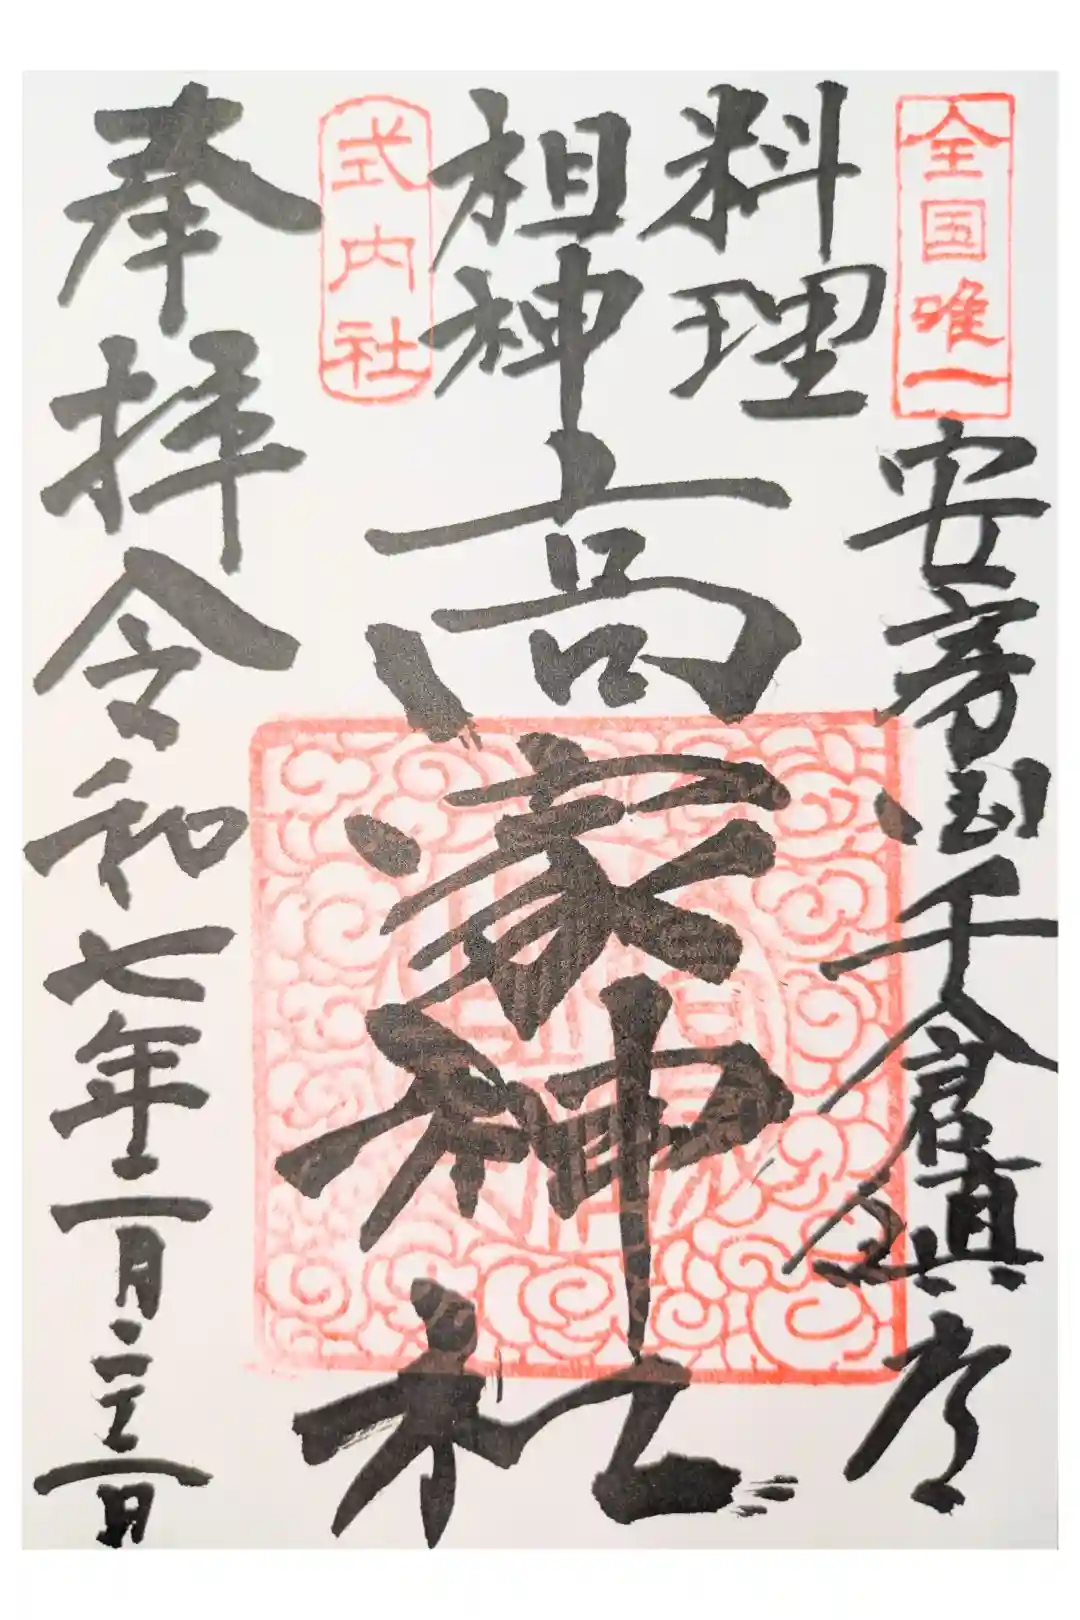 全国唯一
安房国千倉鎮座
料理
祖神
高家神社
式内社
奉拝
令和七年 月 日